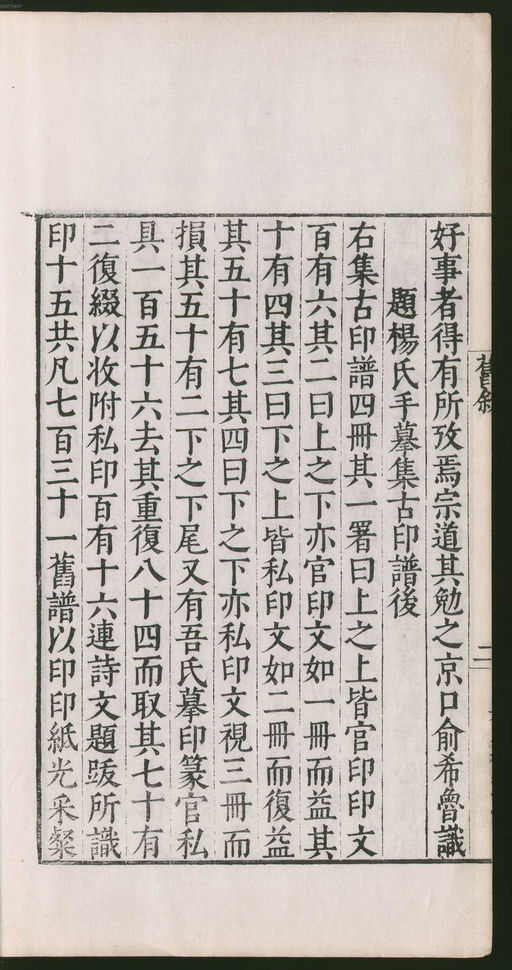 舊敘
二
好事者得有所攷焉宗道其勉之京口俞希魯識
題楊氏手摹集古印譜後
右集古印譜四冊其一署曰上之上皆官印印文
百有六其二曰上之下亦官印文如一冊而益其
十有四其三曰下之上皆私印文如二冊而復益
其五十有七其四曰下之下亦私印文視三冊而
損其五十有二下之下尾又有吾氏摹印篆官私
具一百五十六去其重復八十四而取其七十有
二復綴以收附私印百有十六連詩文題跋所識
印十五共凡七百三十一舊譜以印印紙光采粲